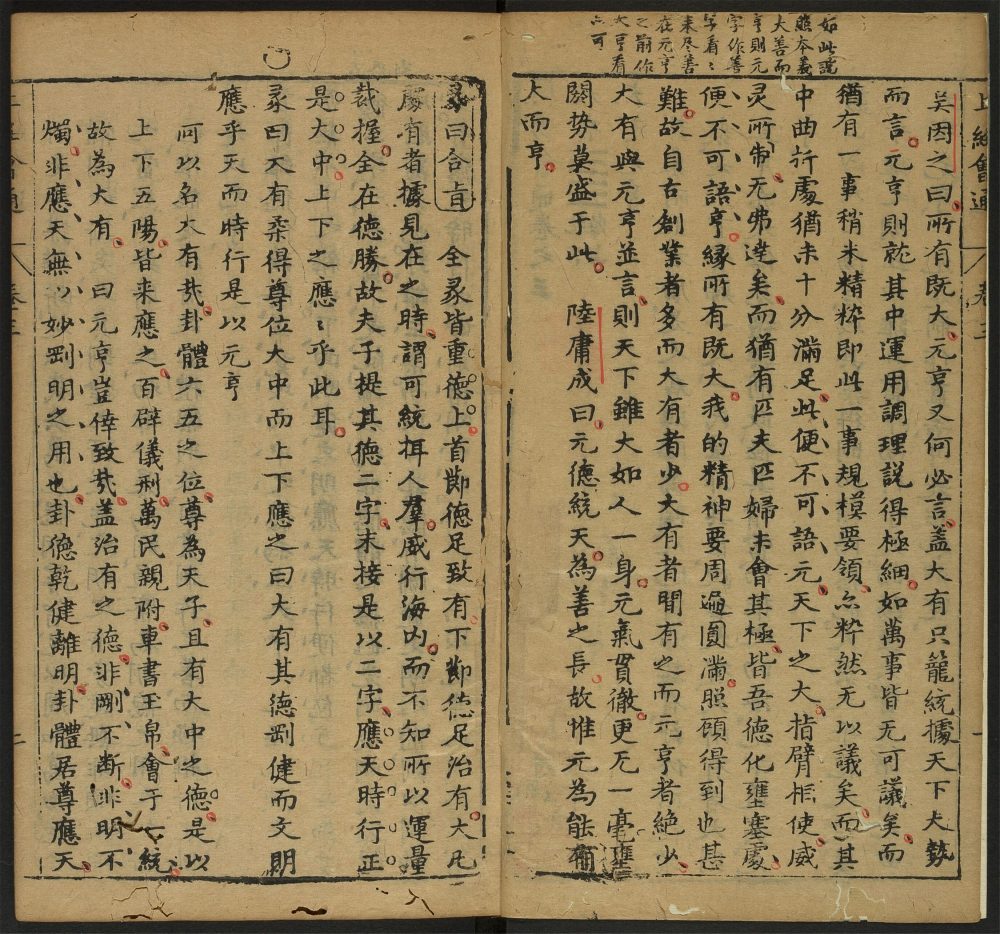 如此說
照本義
大善而
亨則元
字作善
字看
未尽善
在元亨
之前作
大亨看
亦可
上經會通 卷三
吳因之曰所有既大元亨又何必言盖大有只籠統據天下大勢
而言元亨則就其中運用調理說得極細如萬事皆无可議矣而
猶有一事稍未精粹即此一事規模要領亦粹然无以議矣而其
中曲折處猶未十分滿足此便不可語元天下之大指臂相使威
灵所制无弗達矣而猶有匹夫匹婦未會其極皆吾德化壅塞處
便不可語亨緣所有既大我的精神要周遍圓滿照顧得到也甚
難故自古創業者多而大有者少大有者間有之而元亨者絕少
大有與元亨並言則天下雖大如人一身元氣貫徹更无一毫壅
閼势莫盛于此 陸庸成曰元德統天為善之長故惟元為能有
大而亨
彖曰合旨 全彖皆重德上首節德足致有下節德足治有大凡
屬有者據見在之時謂可統挕人羣威行海内而不知所以運量
裁握全在德勝故夫子提其德二字末接是以二字應天時行正
是大中上下之應〻乎此耳
彖曰大有柔得尊位大中而上下應之曰大有其德剛健而文明
應乎天而時行是以元亨
何以名大有㦲卦體六五之位尊為天子且有大中之德是以
上下五陽皆来應之百辟儀刑萬民親附車書玉帛會于一統
故為大有曰元亨豈倖致㦲盖治有之德非剛不断非明不
燭非應天無以妙剛明之用也卦德乾健離明卦體居尊應天